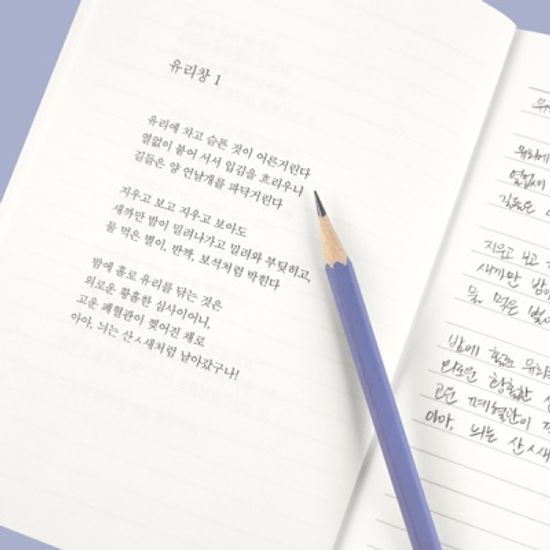 유리창 1
유리에 차고 슬픈 것이 어른거린다
열없이 붙어 서서 입김을 흐리우니
길들은 양 언날개를 파닥거린다
지우고 보고 지우고 보아도
새까만 밤이 밀려나가고 밀려와 부딪히고,
물 먹은 별이, 반짝, 보석처럼 박힌다
밤에 홀로 유리를 닦는 것은
외로운 황홀한 심사이어니,
고운 폐혈관이 찢어진 채로
아아, 늬는 산ㅅ새처럼 날아갔구나!
유리에
열없이
길들은
지우고 보고
새까만 밤
물 먹은 별이
밤에 홀로 유리
외로운 황홀한
고운 폐혈관이
아아, 늬는 산ㅅ새